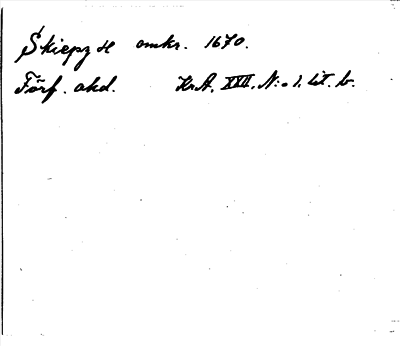 Skiepz H omkr. 1670.
Förf. okd. Kr.A. XXII. N:o 1. lit. b.